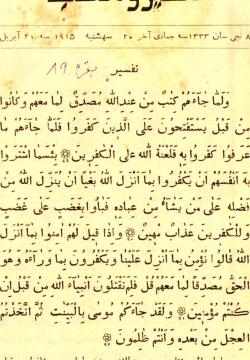 ٨ نجی سان ١٣٣٣ سه جمادی آخر ٢٠ سهشنبه ١٩١٥ سه ٢١ آبریل
تفسیر بقره ٨٩
وَلَمَّا جَاءَهُمْ كِتٰبٌ مِنْ عِنْدِاللهِ مُصَدِّقٌ لِمَا مَعَهُمْ وَكَانُوا
مِن قَبْلُ يَسْتَفْتِحُونَ عَلَى الَّذِينَ كَفَرُوا فَلَمَّا جَاءَهُمْ مَا
عَرَفُوا كَفَرُوا بِهِ فَلَعْنَةُ اللهِ عَلَى الْكٰفِرِينَ ۝ بِئْسَمَا اشْتَرَوْا
بِهِ اَنْفُسَهُمْ اَنْ يَكْفُرُوا بِمَا اَنْزَلَ اللهُ بَغْيًا اَنْ يُنَزِّلَ اللهُ مِنْ
فَضْلِهِ عَلَى مَنْ يَشَاءُ مِنْ عِبَادِهِ فَبَاؤا بِغَضَبٍ عَلَى غَضَبٍ
وَلِلْكٰفِرِينَ عَذَابٌ مُهِينٌ ۝ وَاِذَا قِيلَ لَهُمْ اٰمِنُوا بِمَا اَنْزَلَ
اللهُ قَالُوا نُؤْمِنُ بِمَا اُنْزِلَ عَلَيْنَا وَيَكْفُرُونَ بِمَا وَرَاءَهُ وَهُوَ
الْحَقُّ مُصَدِّقًا لِمَا مَعَهُمْ قُلْ فَلِمَ تَقْتُلُونَ اَنْبِيَاءَ اللهِ مِنْ قَبْلُ اِنْ
كُنْتُمْ مُؤْمِنِينَ ۝ وَلَقَدْ جَاءَكُمْ مُوسٰى بِالْبَيِّنٰتِ ثُمَّ اتَّخَذْتُمُ
الْعِجْلَ مِنْ بَعْدِهِ وَاَنْتُمْ ظٰلِمُونَ ۝